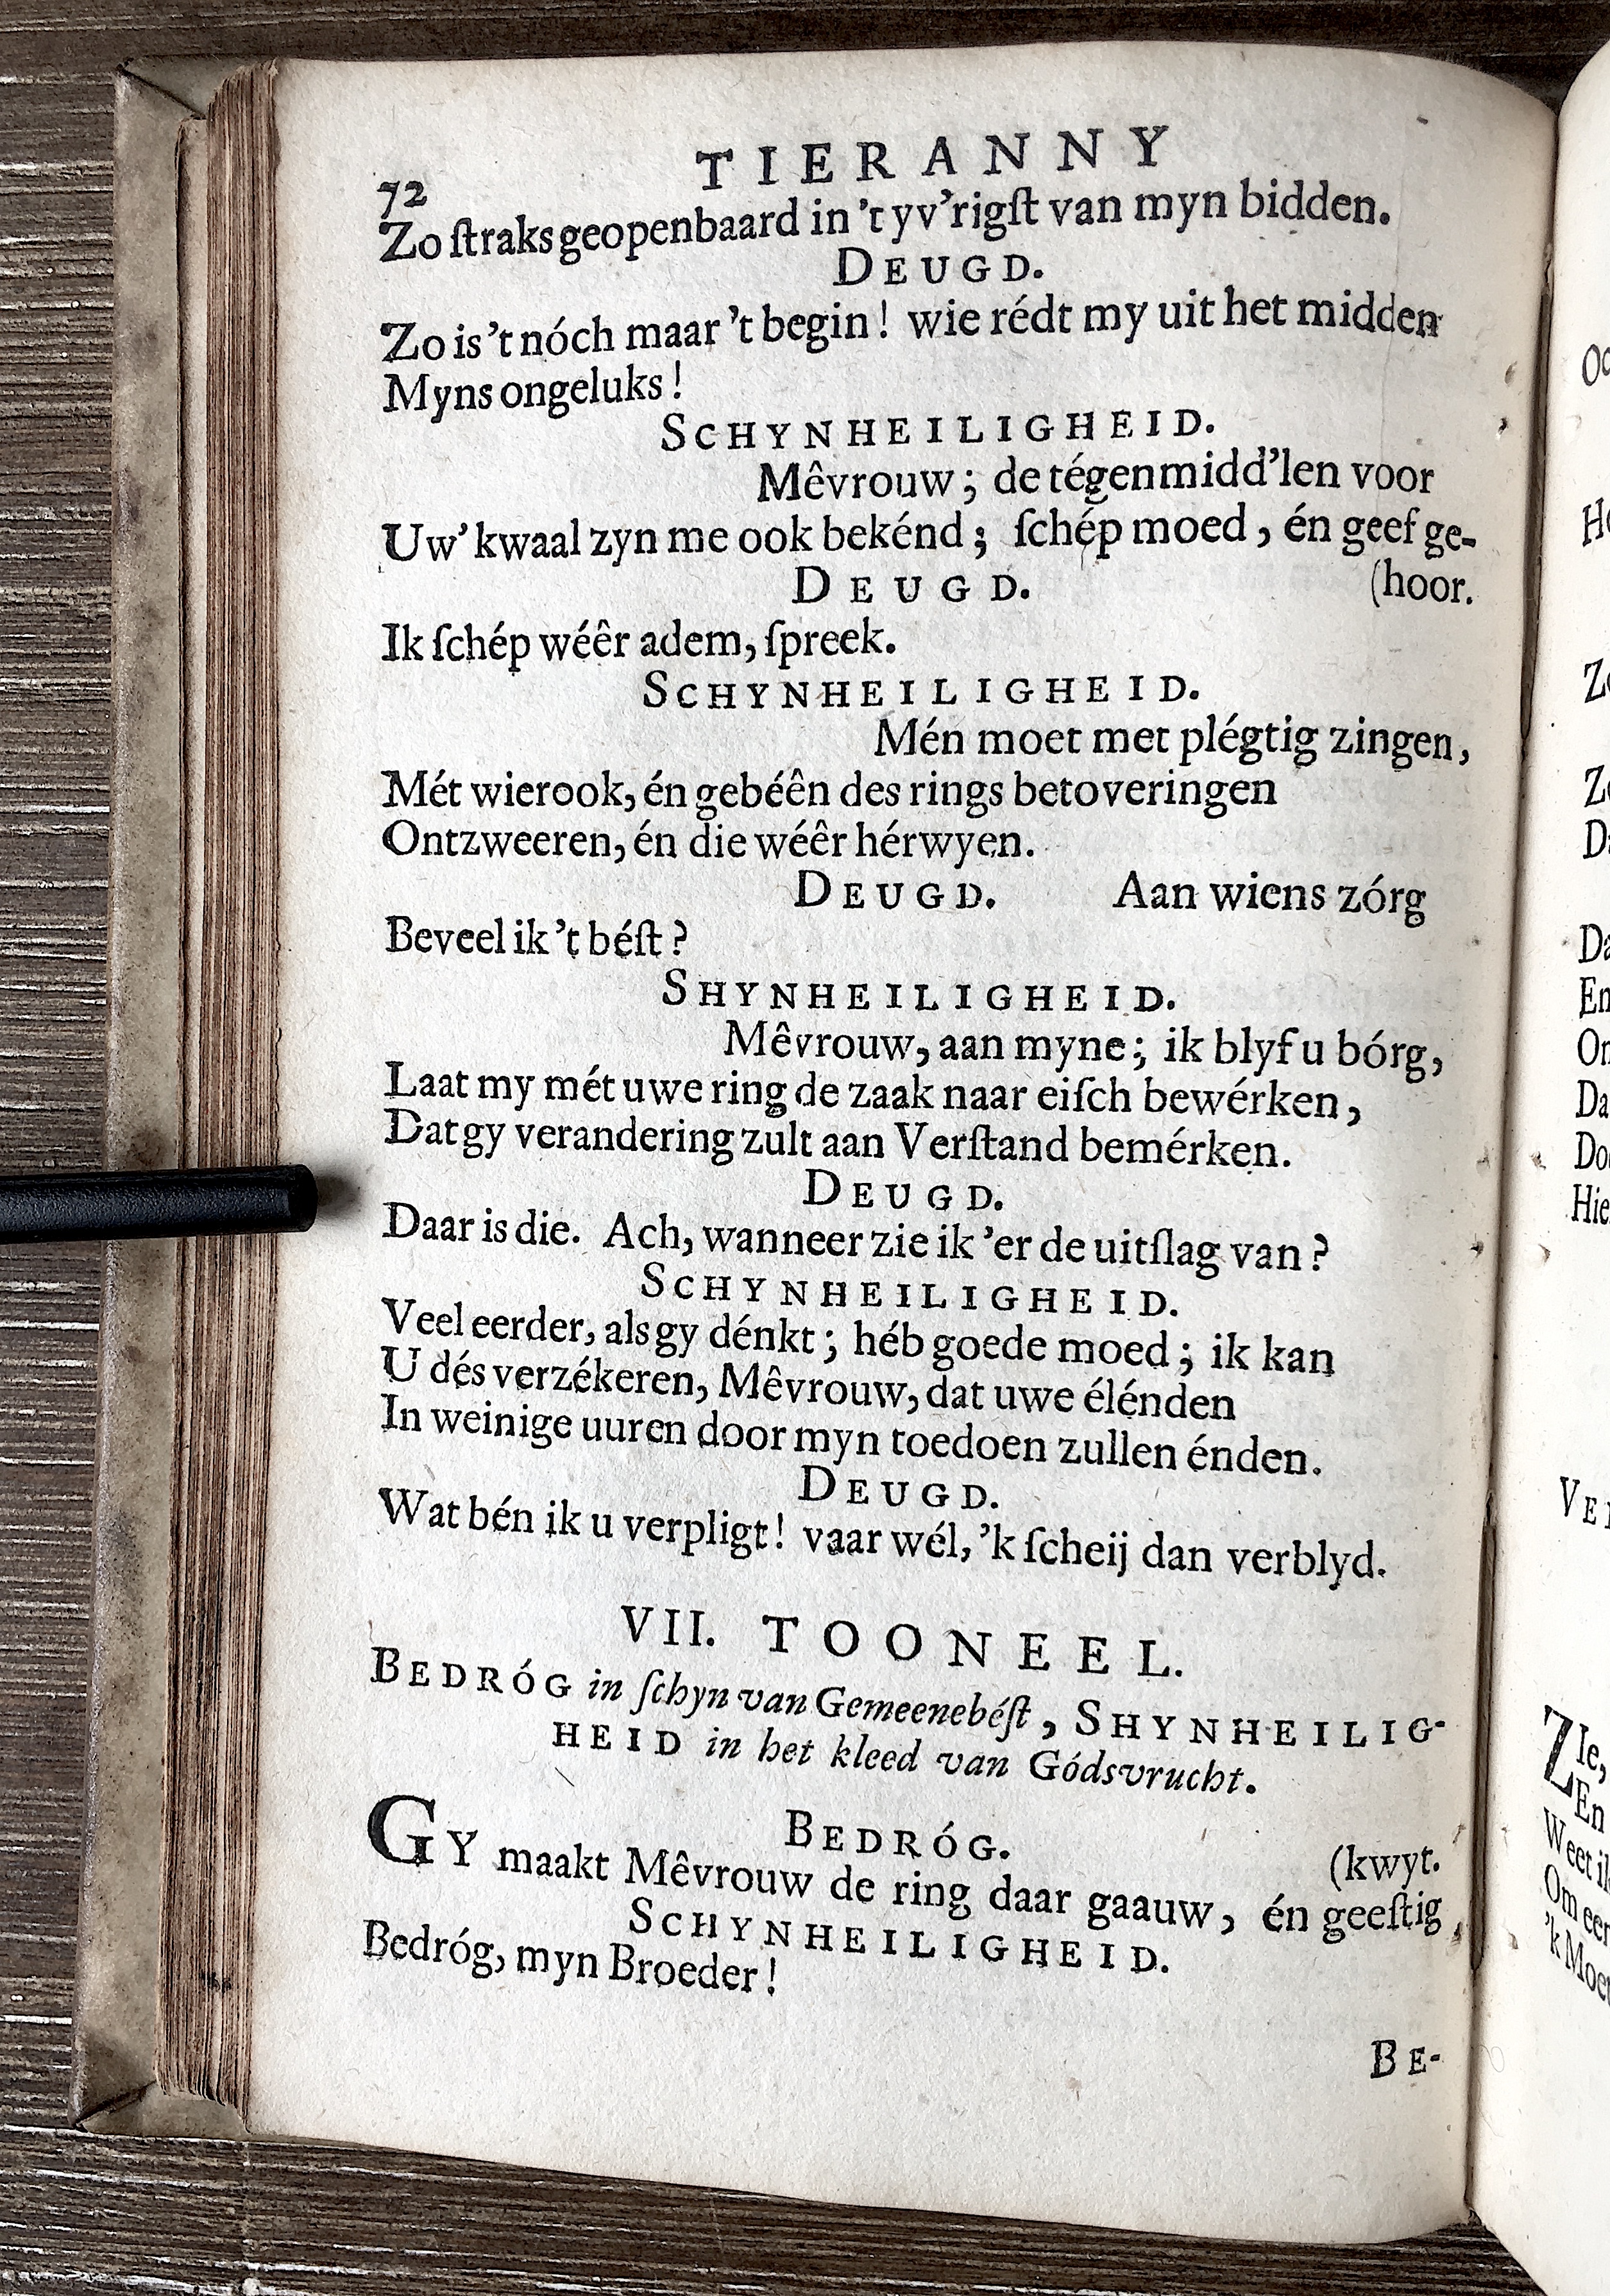 TIERANNY
72
Zo ſtraks geopenbaard in 't yv'rigſt van myn bidden.
DEUGD.
Zo is 't nóch maar 't begin! wie rédt my uit het midden
Myns ongeluks!
SCHYNHEILIGHEID.
Mêvrouw; de tégenmidd'len voor
Uw' kwaal zyn me ook bekénd; ſchép moed, én geef ge-
DEUGD. (hoor.
Ik ſchép wéêr adem, ſpreek.
SCHYNHEILIGHEID.
Mén moet met plégtig zingen,
Mét wierook, én gebéên des rings betoveringen
Ontzweeren, én die wéêr hérwyen.
DEUGD. Aan wiens zórg
Beveel ik 't béſt?
SHYNHEILIGHEID.
Mêvrouw, aan myne; ik blyf u bórg,
Laat my mét uwe ring de zaak naar eiſch bewérken,
Dat gy verandering zult aan Verſtand bemérken.
DEUGD.
Daar is die. Ach, wanneer zie ik 'er de uitſlag van?
SCHYNHEILIGHEID.
Veel eerder, als gy dénkt; héb goede moed; ik kan
U dés verzékeren, Mêvrouw, dat uwe élénden
In weinige uuren door myn toedoen zullen énden.
DEUGD.
Wat bén ik u verpligt! vaar wél, 'k ſcheij dan verblyd.
VII. TOONEEL.
BEDRÓG in ſchyn van Gemeenebéſt, SHYNHEILIG-
HEID in het kleed van Gódsvrucht.
BEDRÓG. (kwyt.
GY maakt Mêvrouw de ring daar gaauw, én geeſtig
SCHYNHEILIGHEID.
Bedróg, myn Broeder!
BE-
Zo
Da
En
Da
Hie
VE
ZIe,
En
Weet ik
Om een
'k Moet